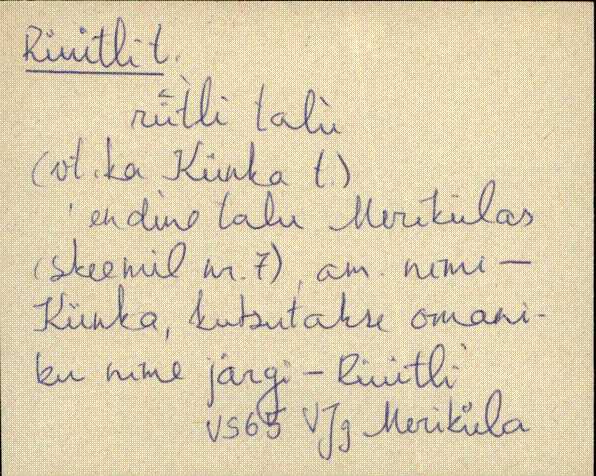 Rüütli t.
rǖtli talu
(vt. ka Künka t.)
endine talu Merikülas
(skeemil nr. 7), am. nimi –
Künka, kutsutakse omani-
ku nime järgi – Rüütli
VS65 VJg Meriküla